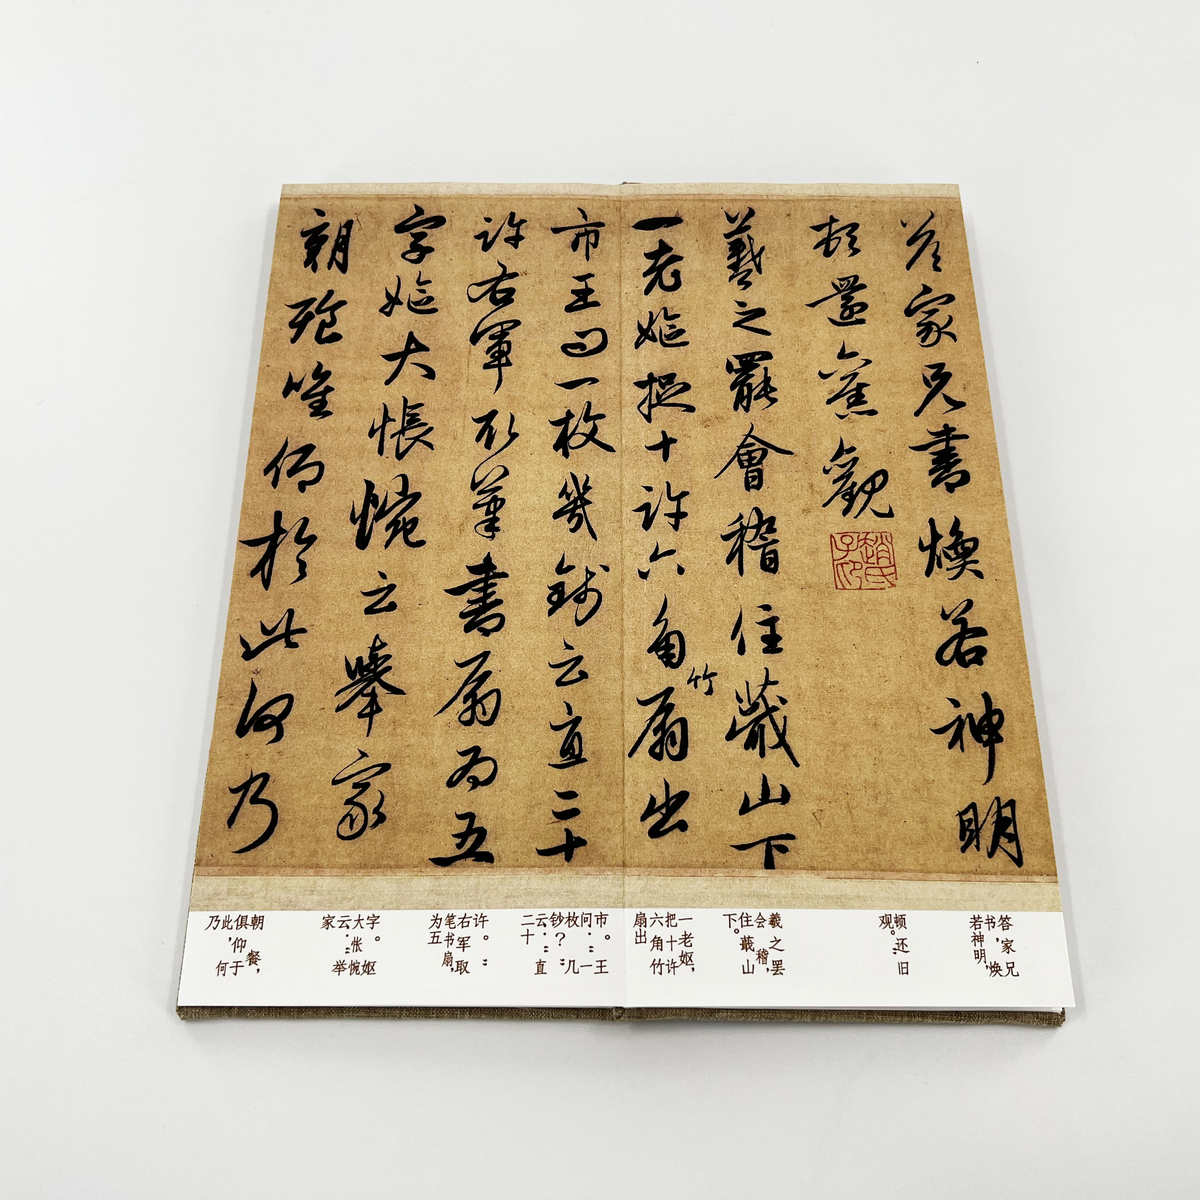 答家兄書煥若神明
頓還舊觀
趙氏子昂
羲之罷會稽住蕺山下
一老嫗捉十許六角竹扇出
市王曰一枚幾錢云直二十
許右軍取筆書扇為五
字嫗大悵惋云舉家
朝飡唯仰於此何乃
答家兄
书，焕
若神明，
顿还旧
观。
羲之罢
会稽，
住蕺山
下。
一老妪，
把十许
六角竹
扇出
市。王
问：“一
枚几
钞？”
云：“直
二十
许。”
右军取
笔书扇，
为五
字。妪
大怅惋
云：“举
家
朝餐，
俱仰于
此，何
乃